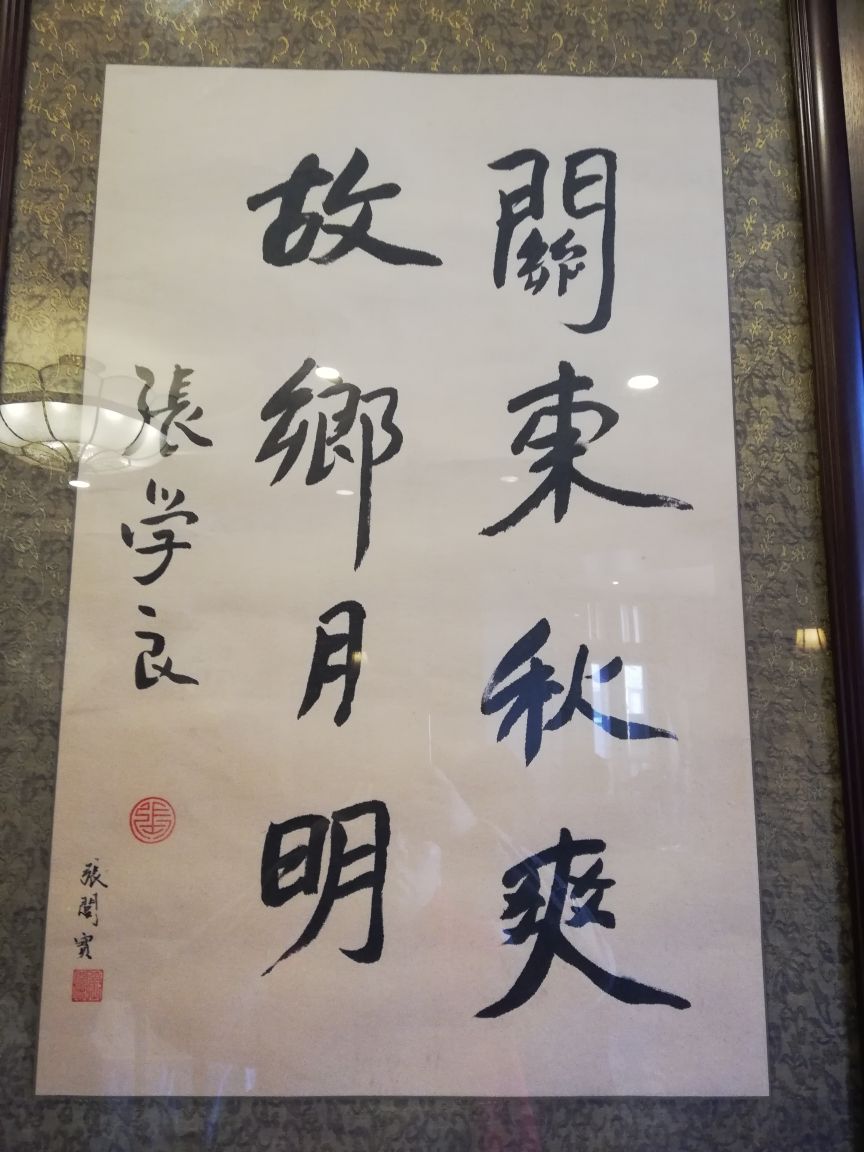 關東秋爽
故鄉月明
張学良
張閭實